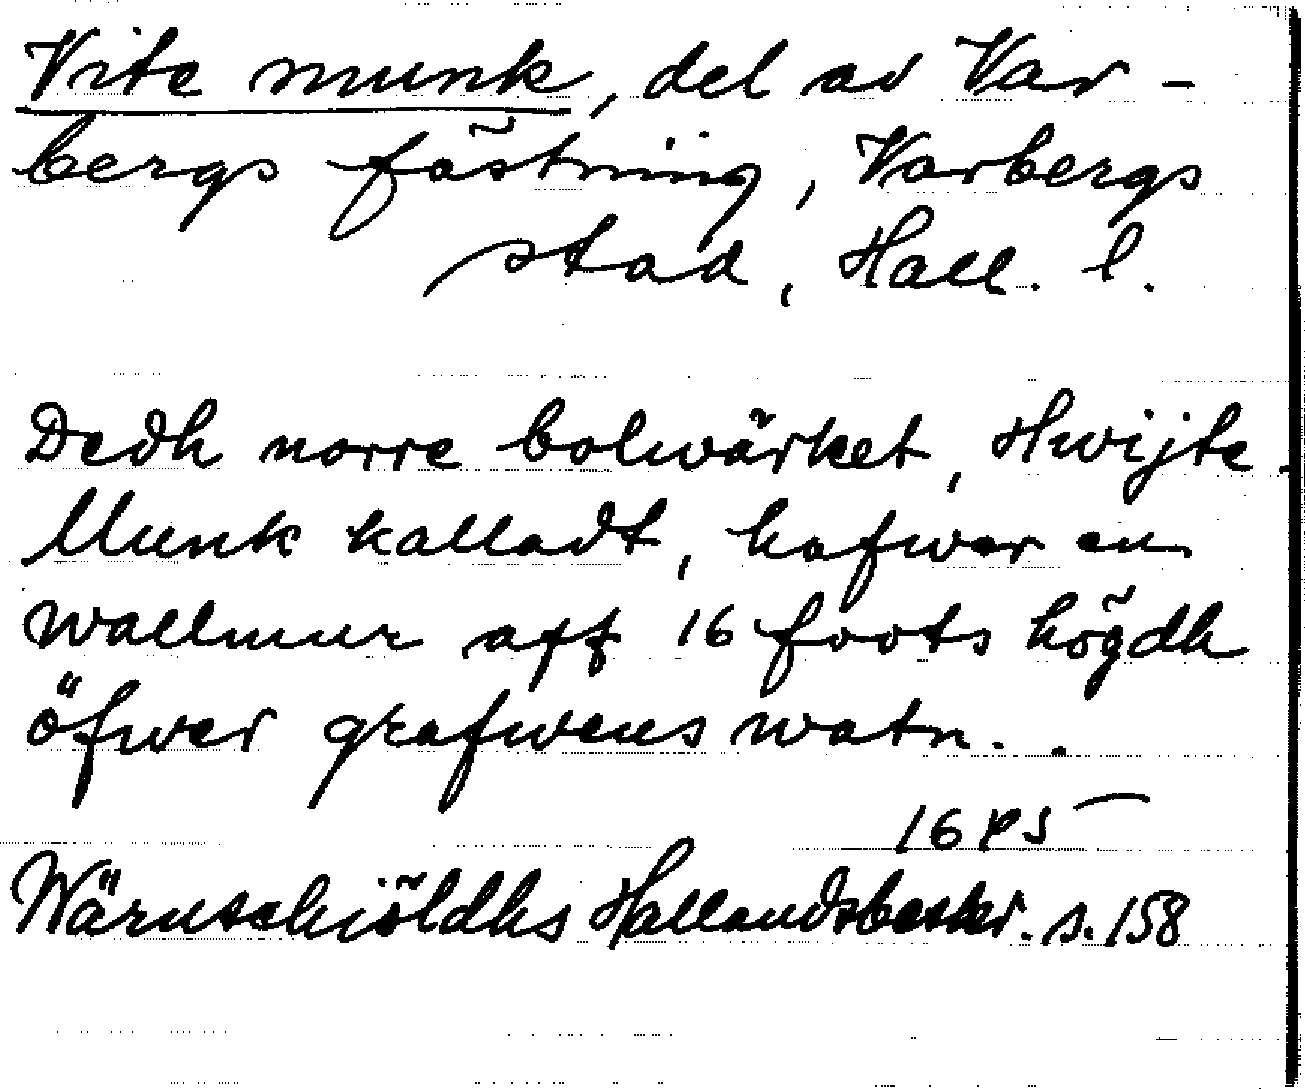 Vite munk, del av Var-
bergs fästning, Varbergs
stad, Hall. l.
Dedh norre bolwärket, Hwijte
Munk kalladt, hafwer en
wallmur aff 16 foots högdh
öfwer grafwens watn. .
Wärnschiöldhs Hallandsbeskr. s. 158